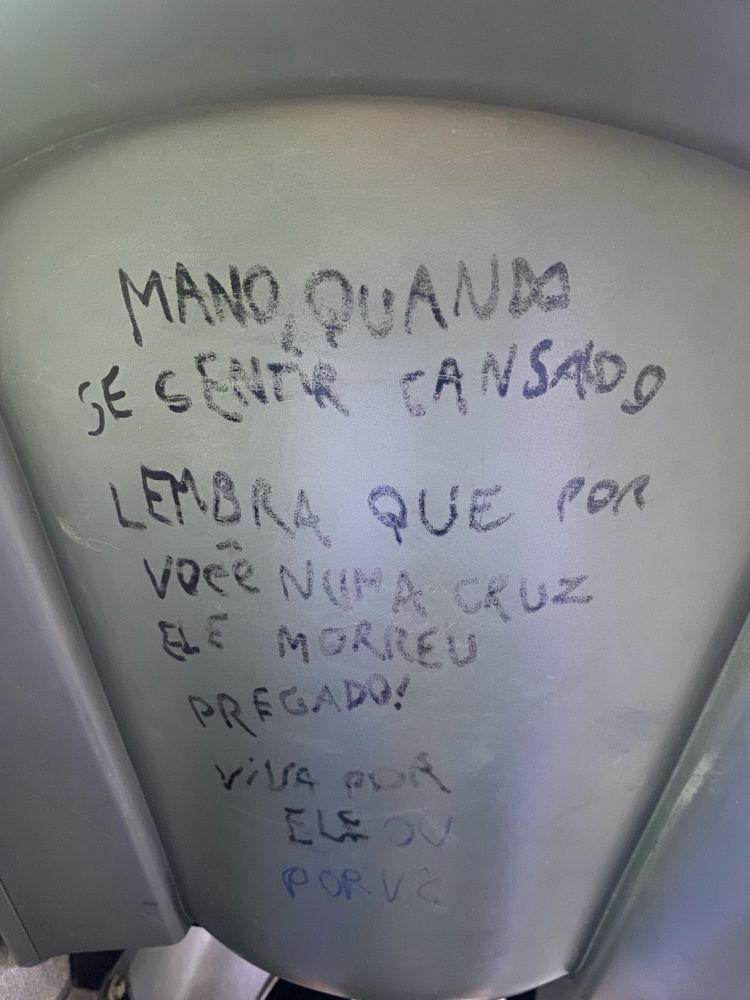 MANO, QUANDO
SE SENTIR CANSADO
LEMBRA QUE POR
VOCÊ NUMA CRUZ
ELE MORREU
PREGADO!
VIVA POR
ELE OU
POR VC